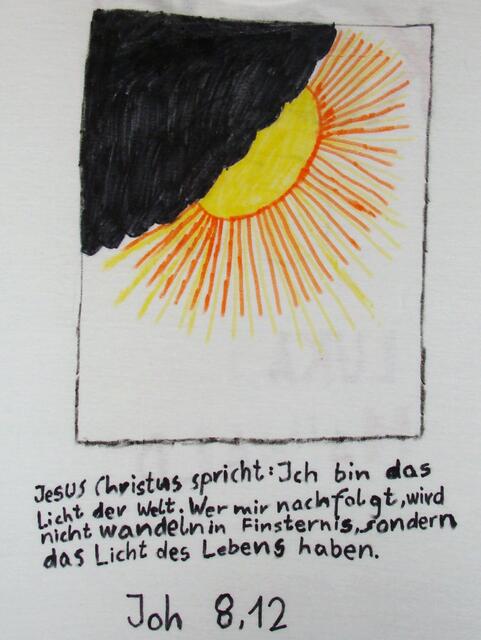 Jesus Christus spricht: Ich bin das
Licht der Welt. Wer mir nachfolgt, wird
nicht wandeln in Finsternis, sondern
das Licht des Lebens haben.
Joh 8,12